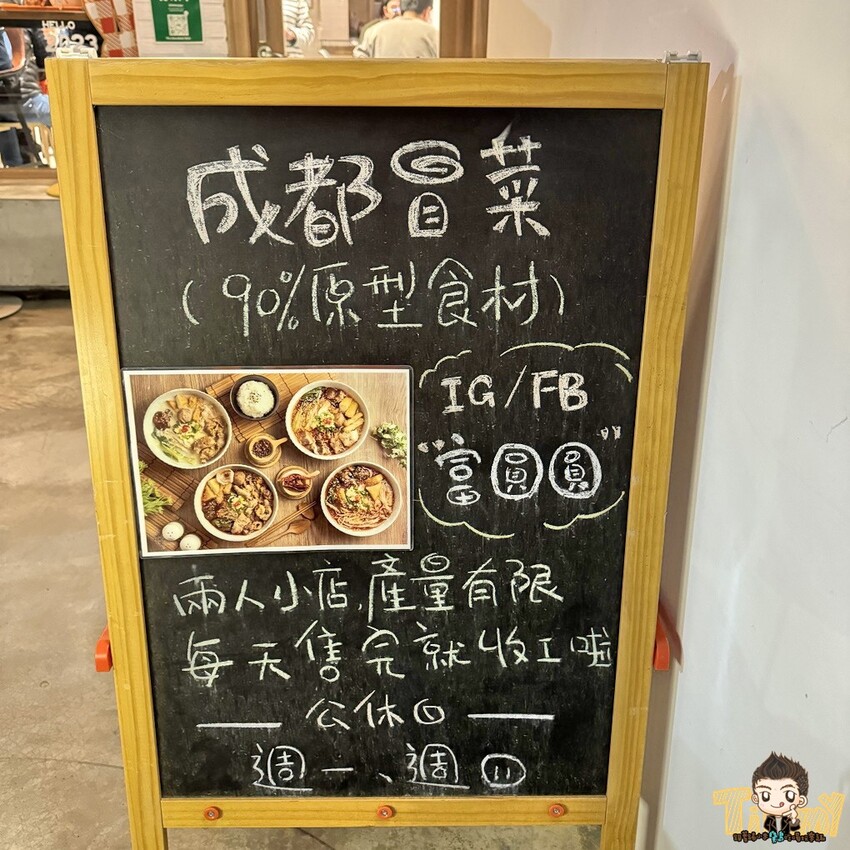 HELLO
2023
成都冒菜
(90%原型食材)
IG/FB
"當圓圓"
兩人小店,產量有限
每天售完就收工啦
—— 公休日 ——
週一、週四